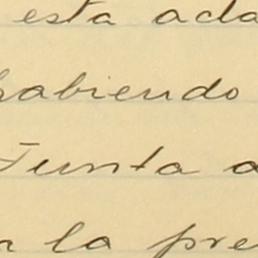 esta acla
habiendo
Junta a
n la pre